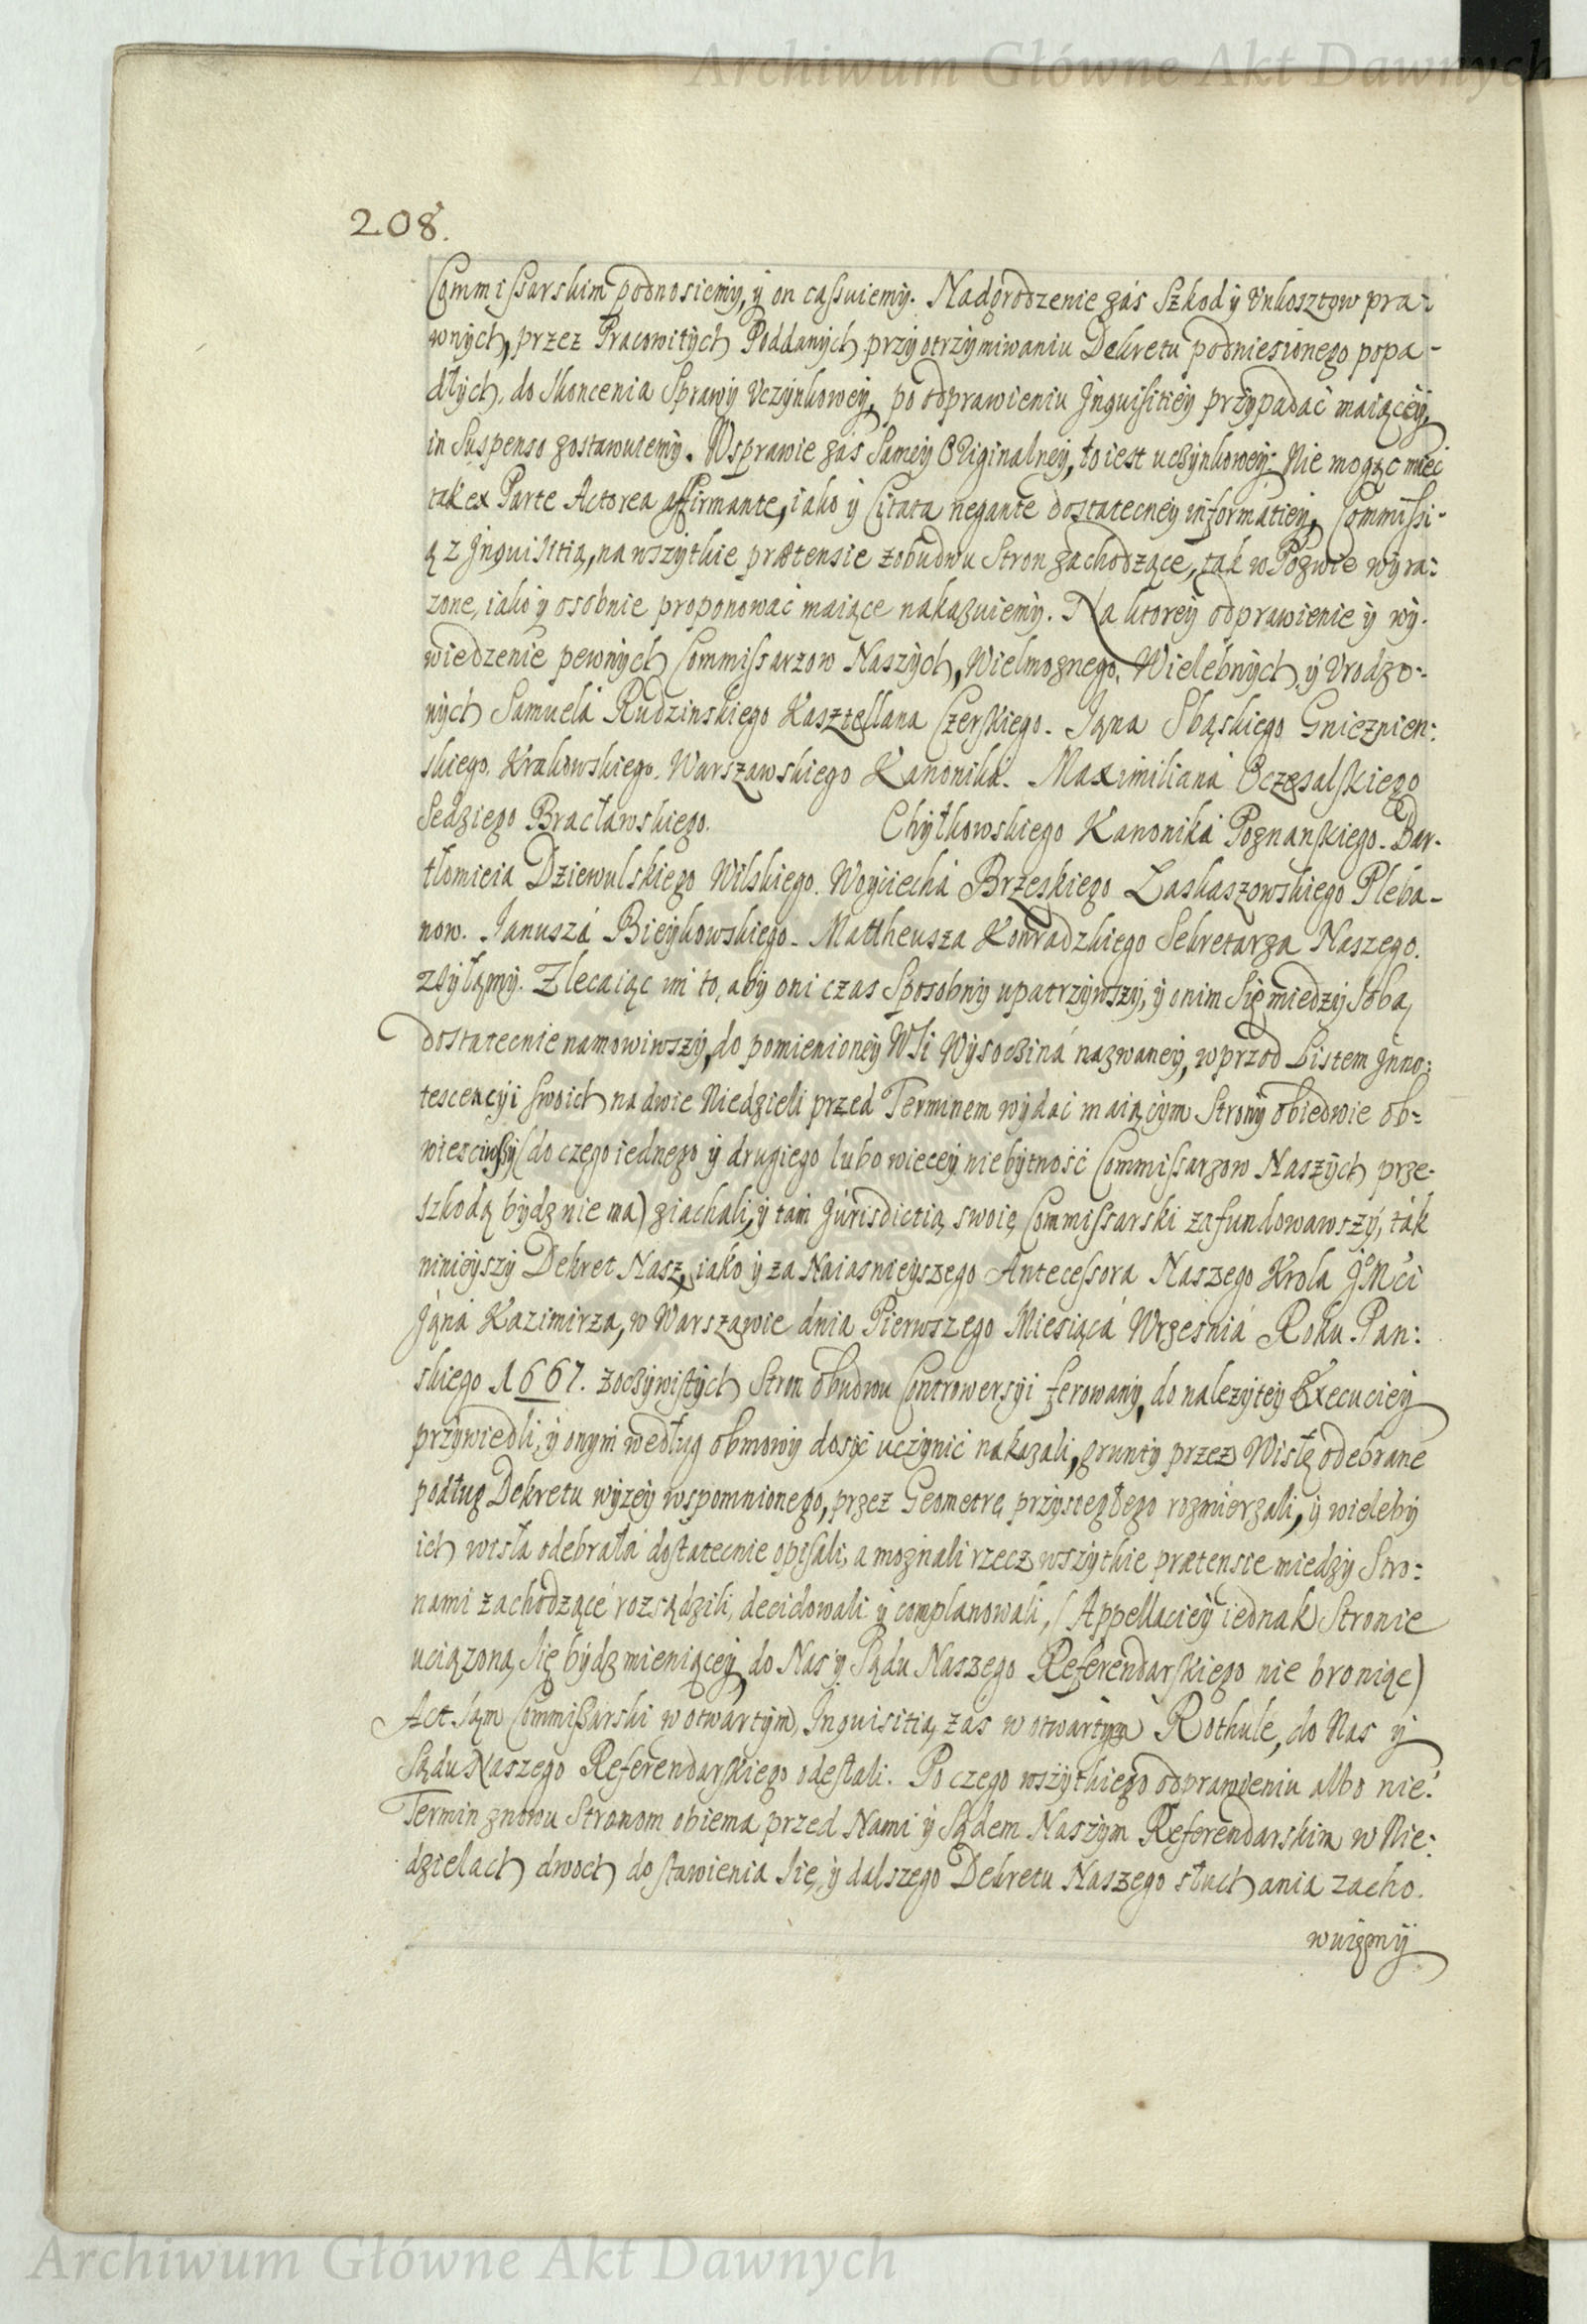 Archiwum Główne Akt Dawnych
208.
Commissarskim podnosiemy, y on cassuiemy. Nadgrodzenie zaś Szkod y Vnkosztow pra-
wnych, przez Pracowitych Poddanych przy otrzymiwaniu Dekretu podniesionego popa-
dłych, do Skoncenia Sprawy Vczynkowey, po odprawieniu Jnquisitiey przypadać maiącey,
in Suspenso zostawuiemy. Wsprawie zaś Samey ORiginalney, to iest uczynkowey: Nie mogąc mieć
tak ex Parte Actorea affirmante, iako y Citata negante dostatecney informatiey, Commissi-
ą z Jnquisitią, na wszytkie prætensie zobudwu Stron zachodzące, tak w Pozwie wyra-
zone, iako y osobnie proponować maiące nakazuiemy. Na ktorey odprawienie y wy-
wiedzenie pewnych Commissarzow Naszych, Wielmoznego, Wielebnych y Vrodzo-
nych Samuelá Rudzinskiego Kasztellana Czerskiego. Jana Sbąskiego Gnieznien-
skiego. Krakowskiego. Warszawskiego Kanoniká. Maximilianá Oczesalskiego
Sędziego Bracławskiego. Chytkowskiego Kanoniká Poznanskiego. Bar-
tłomieia Dziewulskiego Wilskiego. Woyciechá Brzeskiego Laskaszowskiego Pleba-
now. Januszá Bieykowskiego. Mattheusza Konradzkiego Sekretarza Naszego.
zsyłamy. Zlecaiąc im to, aby oni czas Sposobny upatrzywszy, y onim Się miedzy Sobą
dostatecnie namowiwszy, do pomienioney Wsi Wysocziná nazwaney, wprzod Listem Jnno-
tescencyi swoich na dwie Niedzieli przed Terminem wydać maiącym Strony obiedwie ob-
wiesciwszy (do czego iednego y drugiego lubo wiecey niebytność Commissarzow Naszych prze-
szkodą bydz nie ma) ziachali, y tam Jurisdictią swoię Commissarski zafundowawszy, ták
ninieyszy Dekret Nasz, iako y za Naiasnieyszego Antecessora Naszego Krola JeMci
Jąná Kazimirza, w Warszawie dnia Pierwszego Miesiącá Wrzesniá Roku Pan-
skiego 1667. zoczywistych Stron obudwu Controwersyi ferowany, do nalezytey Execuciey
przywiedli, y onym według obmowy dosyć uczynić nakazali, grunty przez Wisłę odebrane
podług Dekretu wyzey wspomnionego, przez Geometrę przysięgłego rozmierzali, y wieleby
ich wisła odebrała dostatecnie opisali, a moznali rzecz wszytkie prætensie miedzy Stro-
nami zachodzące rozsądzili, decidowali y complanowali, (Appellaciey iednak Stronie
uciązoną Się bydz mieniącey, do Nas y Sądu Naszego Referendarskiego nie broniąc)
Act Sąm Commissarski w otwartym, Jnquisitią zas w otwartym Rothule, do Nas y
Sądu Naszego Referendarskiego odesłali. Po czego wszytkiego odprawieniu albo nie:
Termin znowu Stronom obiema przed Nami y Sądem Naszym Referendarskim w Nie-
dzielach dwoch do stawienia Się, y dalszego Dekretu Naszego słuchania zacho.
wuiemy
Archiwum Główne Akt Dawnych